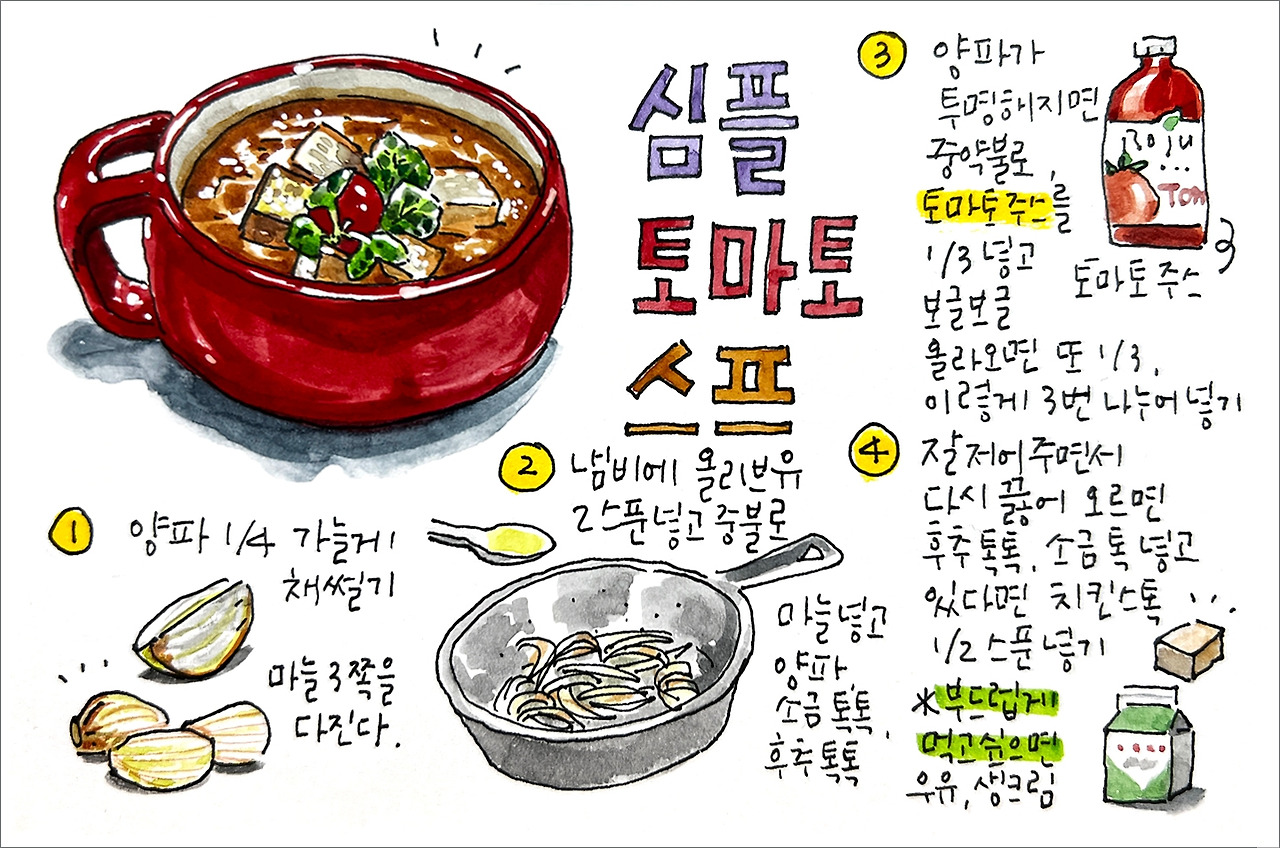 심플
토마토
스프
1
양파 1/4 가늘게
채썰기
마늘 3쪽을
다진다.
2
냄비에 올리브유
2스푼 넣고 중불로
마늘 넣고
양파,
소금 톡톡,
후추 톡톡
3
양파가
투명해지면
중약불로,
토마토 주스를
1/3 넣고
보글보글
올라오면 또 1/3.
이렇게 3번 나누어 넣기
Tom
토마토 주스
4
잘 저어주면서
다시 끓어 오르면
후추 톡톡, 소금 톡 넣고
있다면 치킨스톡
1/2 스푼 넣기
*부드럽게
먹고싶으면
우유, 생크림